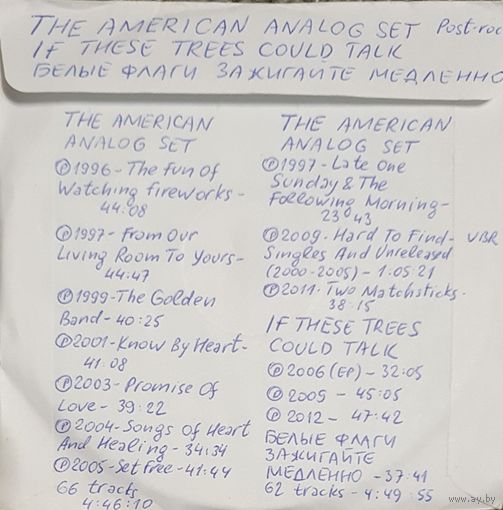 THE AMERICAN ANALOG SET Post-roc
IF THESE TREES COULD TALK
БЕЛЫЕ ФЛАГИ ЗАЖИГАЙТЕ МЕДЛЕННО
THE AMERICAN
ANALOG SET
℗1996-The Fun Of
Watching fireworks-
44:08
℗1997-From Our
Living Room To Yours-
44:47
℗1999-The Golden
Band-40:25
℗2001-Know By Heart-
41:08
℗2003-Promise Of
Love-39:22
℗2004-Songs of Heart
And Healing-34:34
℗2005-Set Free-41:44
66 tracks
4:46:10
THE AMERICAN
ANALOG SET
℗1997-Late One
Sunday & The
Following Morning-
23:43
℗2009-Hard To Find- VBR
Singles And Unreleased
(2000-2005)-1:05:21
℗2011-Two Matchsticks-
38:15
IF THESE TREES
COULD TALK
℗2006(EP)-32:05
℗2009-45:05
℗2012-47:42
БЕЛЫЕ ФЛАГИ
ЗАЖИГАЙТЕ
МЕДЛЕННО-37:41
62 tracks-4:49:55
www.ay.by